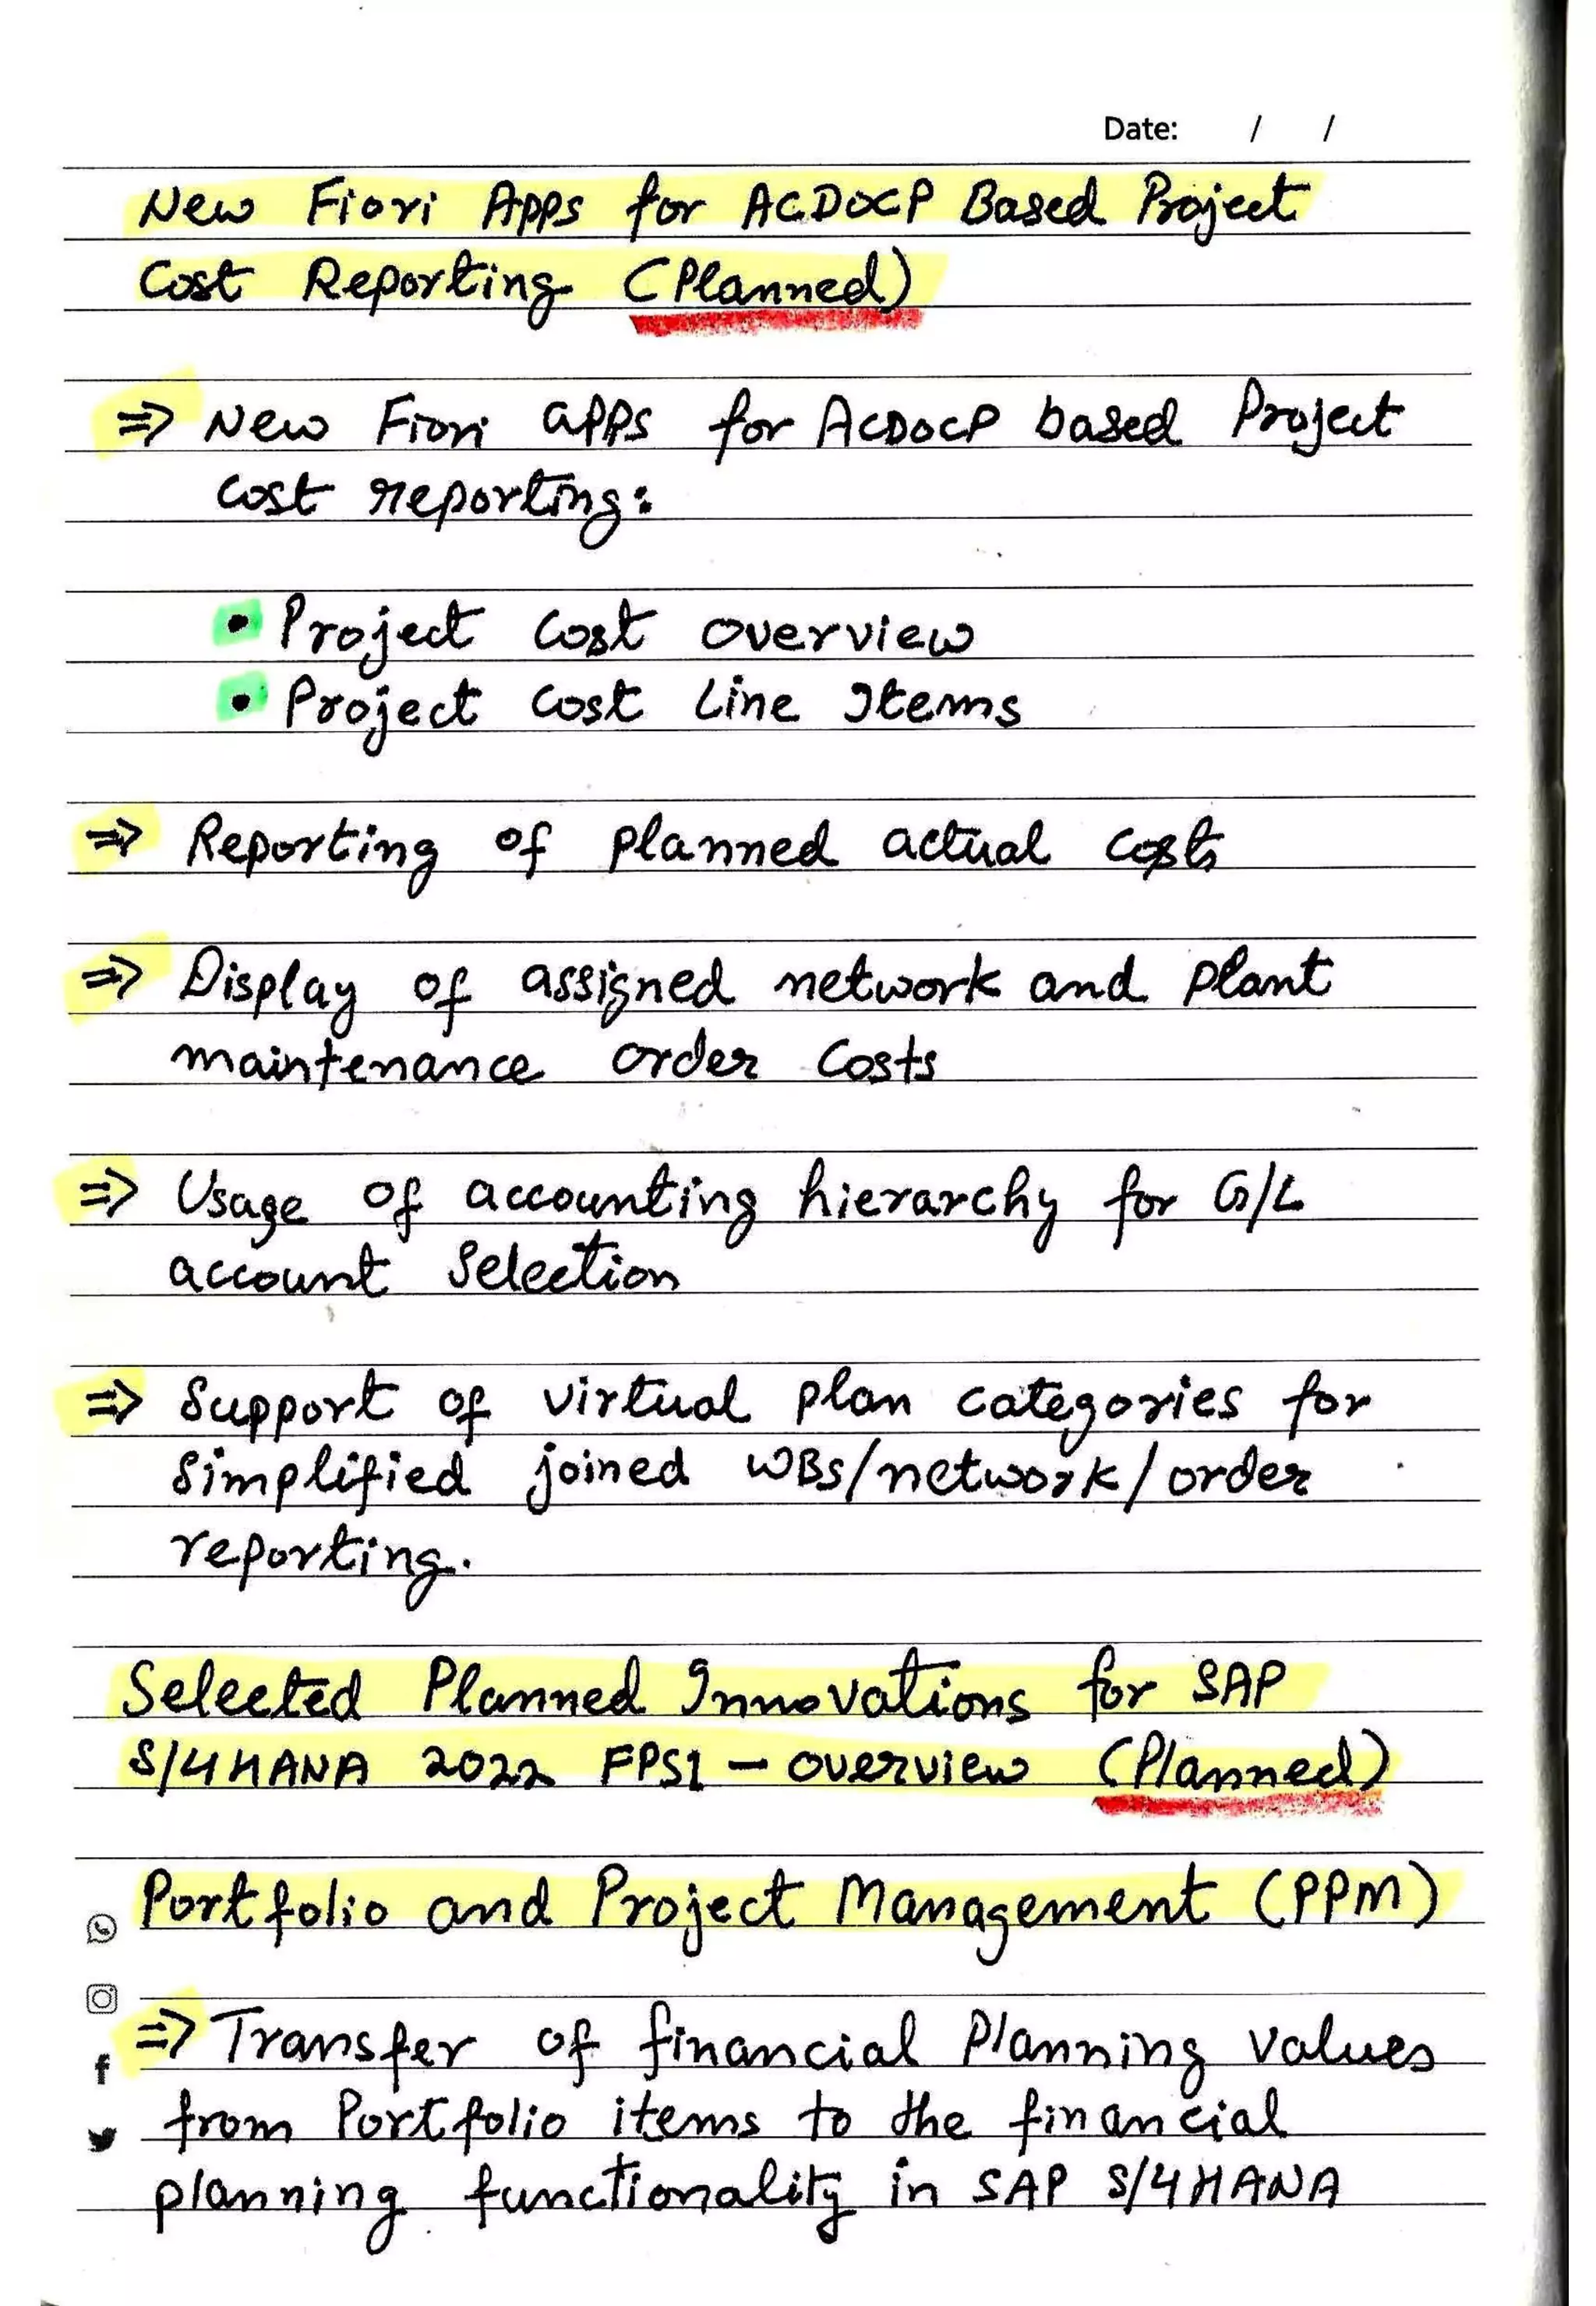 Date: / /
New Fiori Apps for ACDOCP Based Project
Cost Reporting (Planned)
⇒ New Fiori apps for ACDOCP based Project
cost reporting:
• Project cost overview
• Project cost Line Items
⇒ Reporting of planned actual costs
⇒ Display of assigned network and plant
maintenance order costs
⇒ Usage of accounting hierarchy for G/L
account Selection
⇒ Support of virtual plan categories for
simplified joined WBS/network/order
reporting.
Selected Planned Innovations for SAP
S/4HANA 2022 FPS1 – overview (Planned)
Portfolio and Project Management (PPM)
⇒ Transfer of financial Planning values
from Portfolio items to the financial
planning functionality in SAP S/4HANA